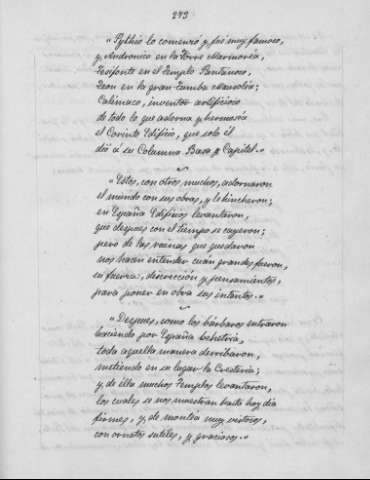 293
"Pythio lo comenzó y fué muy famoso,
y Andronico en la Torre Marmorea,
Tesifonte en el Templo Pantanoso,
Leon en la gran Tumba Mausolea;
Calimaco, inventor artificioso
de todo lo que adorna y hermosea
el Corinto Edificio, que solo él
dió á su Columna Basa y Capitel."
"Estos, con otros muchos, adornaron
el mundo con sus obras, y le hincheron;
en España Edificios levantaron,
que despues con el tiempo se cayeron;
pero de las ruinas que quedaron
nos hacen entender cuan grandes fueron,
su fuerza, discrección y pensamientos,
para poner en obra sus intentos."
"Despues, como los bárbaros entraron
haciendo por España behetría,
toda aquella manera derribaron,
metiendo en su lugar la Crestería;
y de ella muchos Templos levantaron,
los cuales se nos muestran hasta hoy dia
firmes, y de montéa muy vistosos,
con ornatos sutiles, y graciosos."